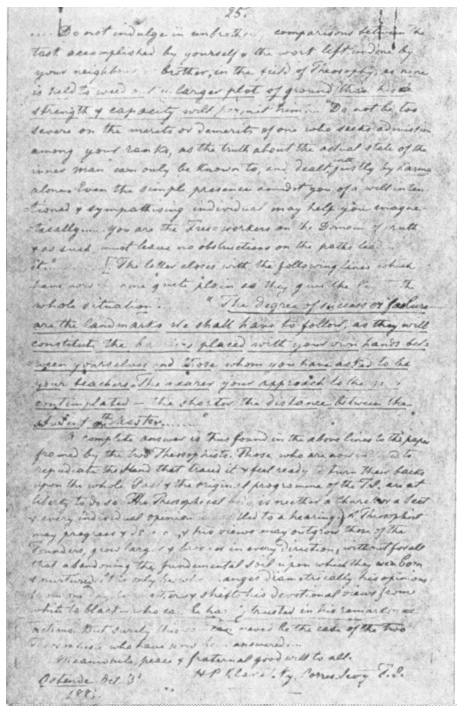 25.
.... Do not indulge in comparisons between the
task accomplished by yourself & the work left undone by
your brother, in the field of Theosophy, as none
is held to weed a larger plot of ground than his
strength & capacity will permit him.... "Do not be too
severe on the merits or demerits of one who seeks admission
among your ranks, as the truth about the actual state of the
inner man can only be known to, and dealt with justly by Karma
alone. Even the simple presence amidst you of a well inten
tioned & sympathising individual may help you magne-
tically.... you are the Free workers on the Domain of Truth
& as such must leave no obstructions on the paths
it." [The letter closes with the following lines which
have now quite plain as they give the
whole situation. "The degree of success or failure
are the landmarks we shall have to follow, as they will
constitute the placed with your own hands bet
ween yourselves and those whom you have asked to be
your teachers. The nearer your approach to the
contemplated — the shorter the distance between the
Student & the Master......"
A complete answer is thus found in the above lines to the paper
framed by the two Theosophists. Those who are now to
repudiate the Hand that traced it & feel ready to turn their backs
upon the whole Past & the original programme of the T.S. are at
liberty to do so. The Theosophical is neither a Church or a Sect
& every individual opinion to a hearing. A Theosophist
may progress & & his views may outgrow those of the
Founders, grow larger & in every direction, without for all
that abandoning the fundamental soil upon which they were born
& nurtured. It is only he who changes diametrically his opinions
from one day to & shifts his devotional views from
white to black — who can be trusted in his remarks and
actions. But surely this can never be the case of the two
Theosophists who have now been answered....
Meanwhile, peace & fraternal good will to all.
Ostende Oct. 3
H P Blavatsky, Corres. Secy T.S.